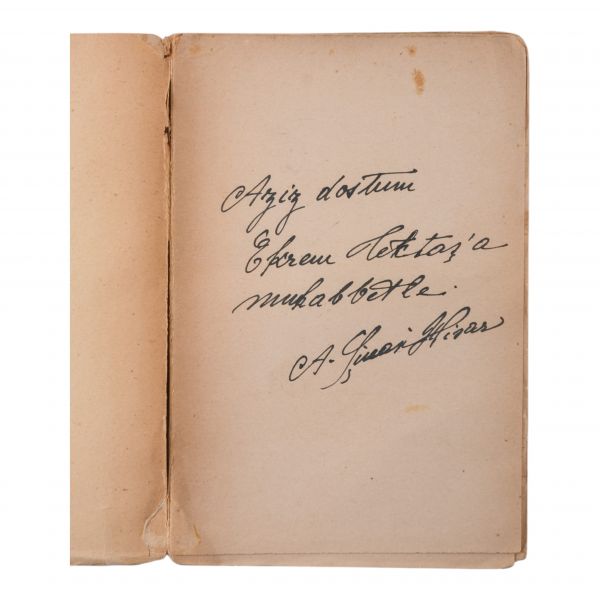 Aziz dostum
Ekrem Hektaş'a
muhabbetle.
A. Şinasi Hisar